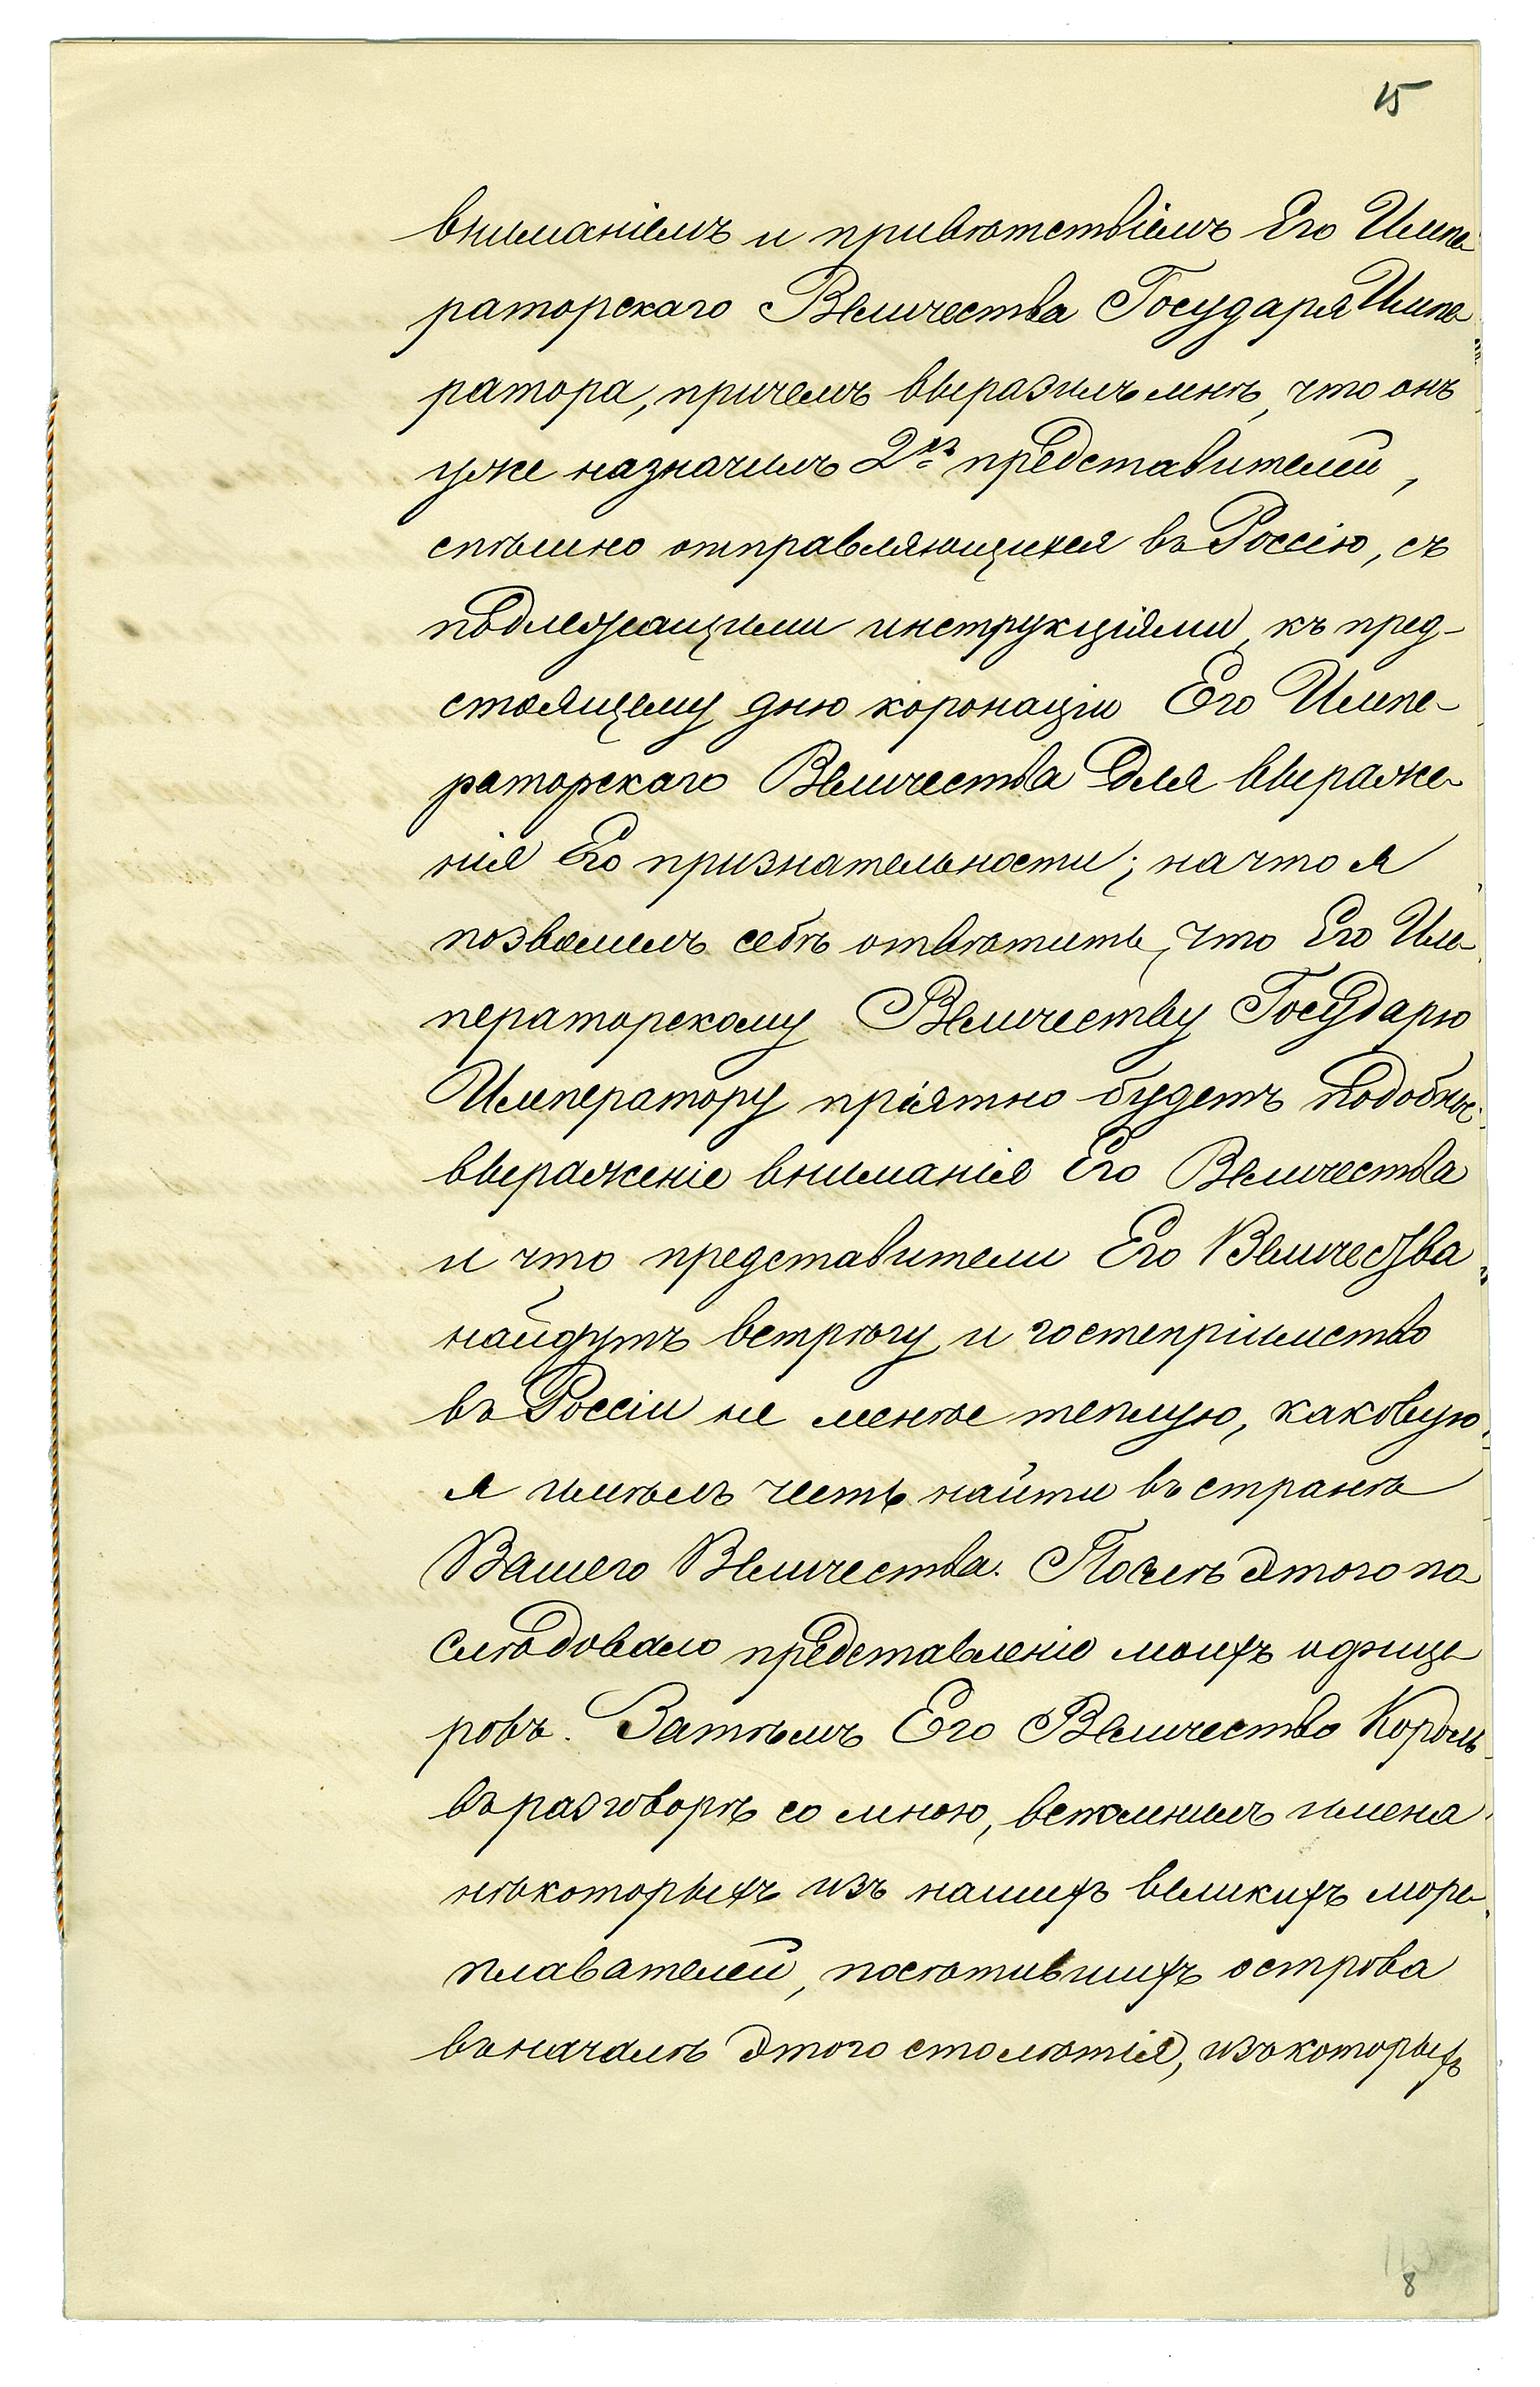 15
вниманіемъ и привѣтствіемъ Его Импе-
раторскаго Величества Государя Импе-
ратора, причемъ выразилъ мнѣ, что онъ
уже назначилъ 2хъ представителей,
спѣшно отправляющихся въ Россію, съ
подлежащими инструкціями, къ пред-
стоящему дню коронаціи Его Импе-
раторскаго Величества для выраже-
нія Его признательности; на что я
позволилъ себѣ отвѣтить, что Его Им-
ператорскому Величеству Государю
Императору пріятно будетъ подобное
выраженіе вниманія Его Величества
и что представители Его Величества
найдутъ встрѣчу и гостепріимство
въ Россіи не менѣе теплую, каковую
я имѣлъ честь найти въ странѣ
Вашего Величества. Послѣ этого по-
слѣдовало представленіе моихъ офице-
ровъ. Затѣмъ Его Величество Король
въ разговорѣ со мною, вспомнилъ имена
нѣкоторыхъ изъ нашихъ великихъ море-
плавателей, посѣтившихъ острова
въ началѣ этого столѣтія, изъ которыхъ
8